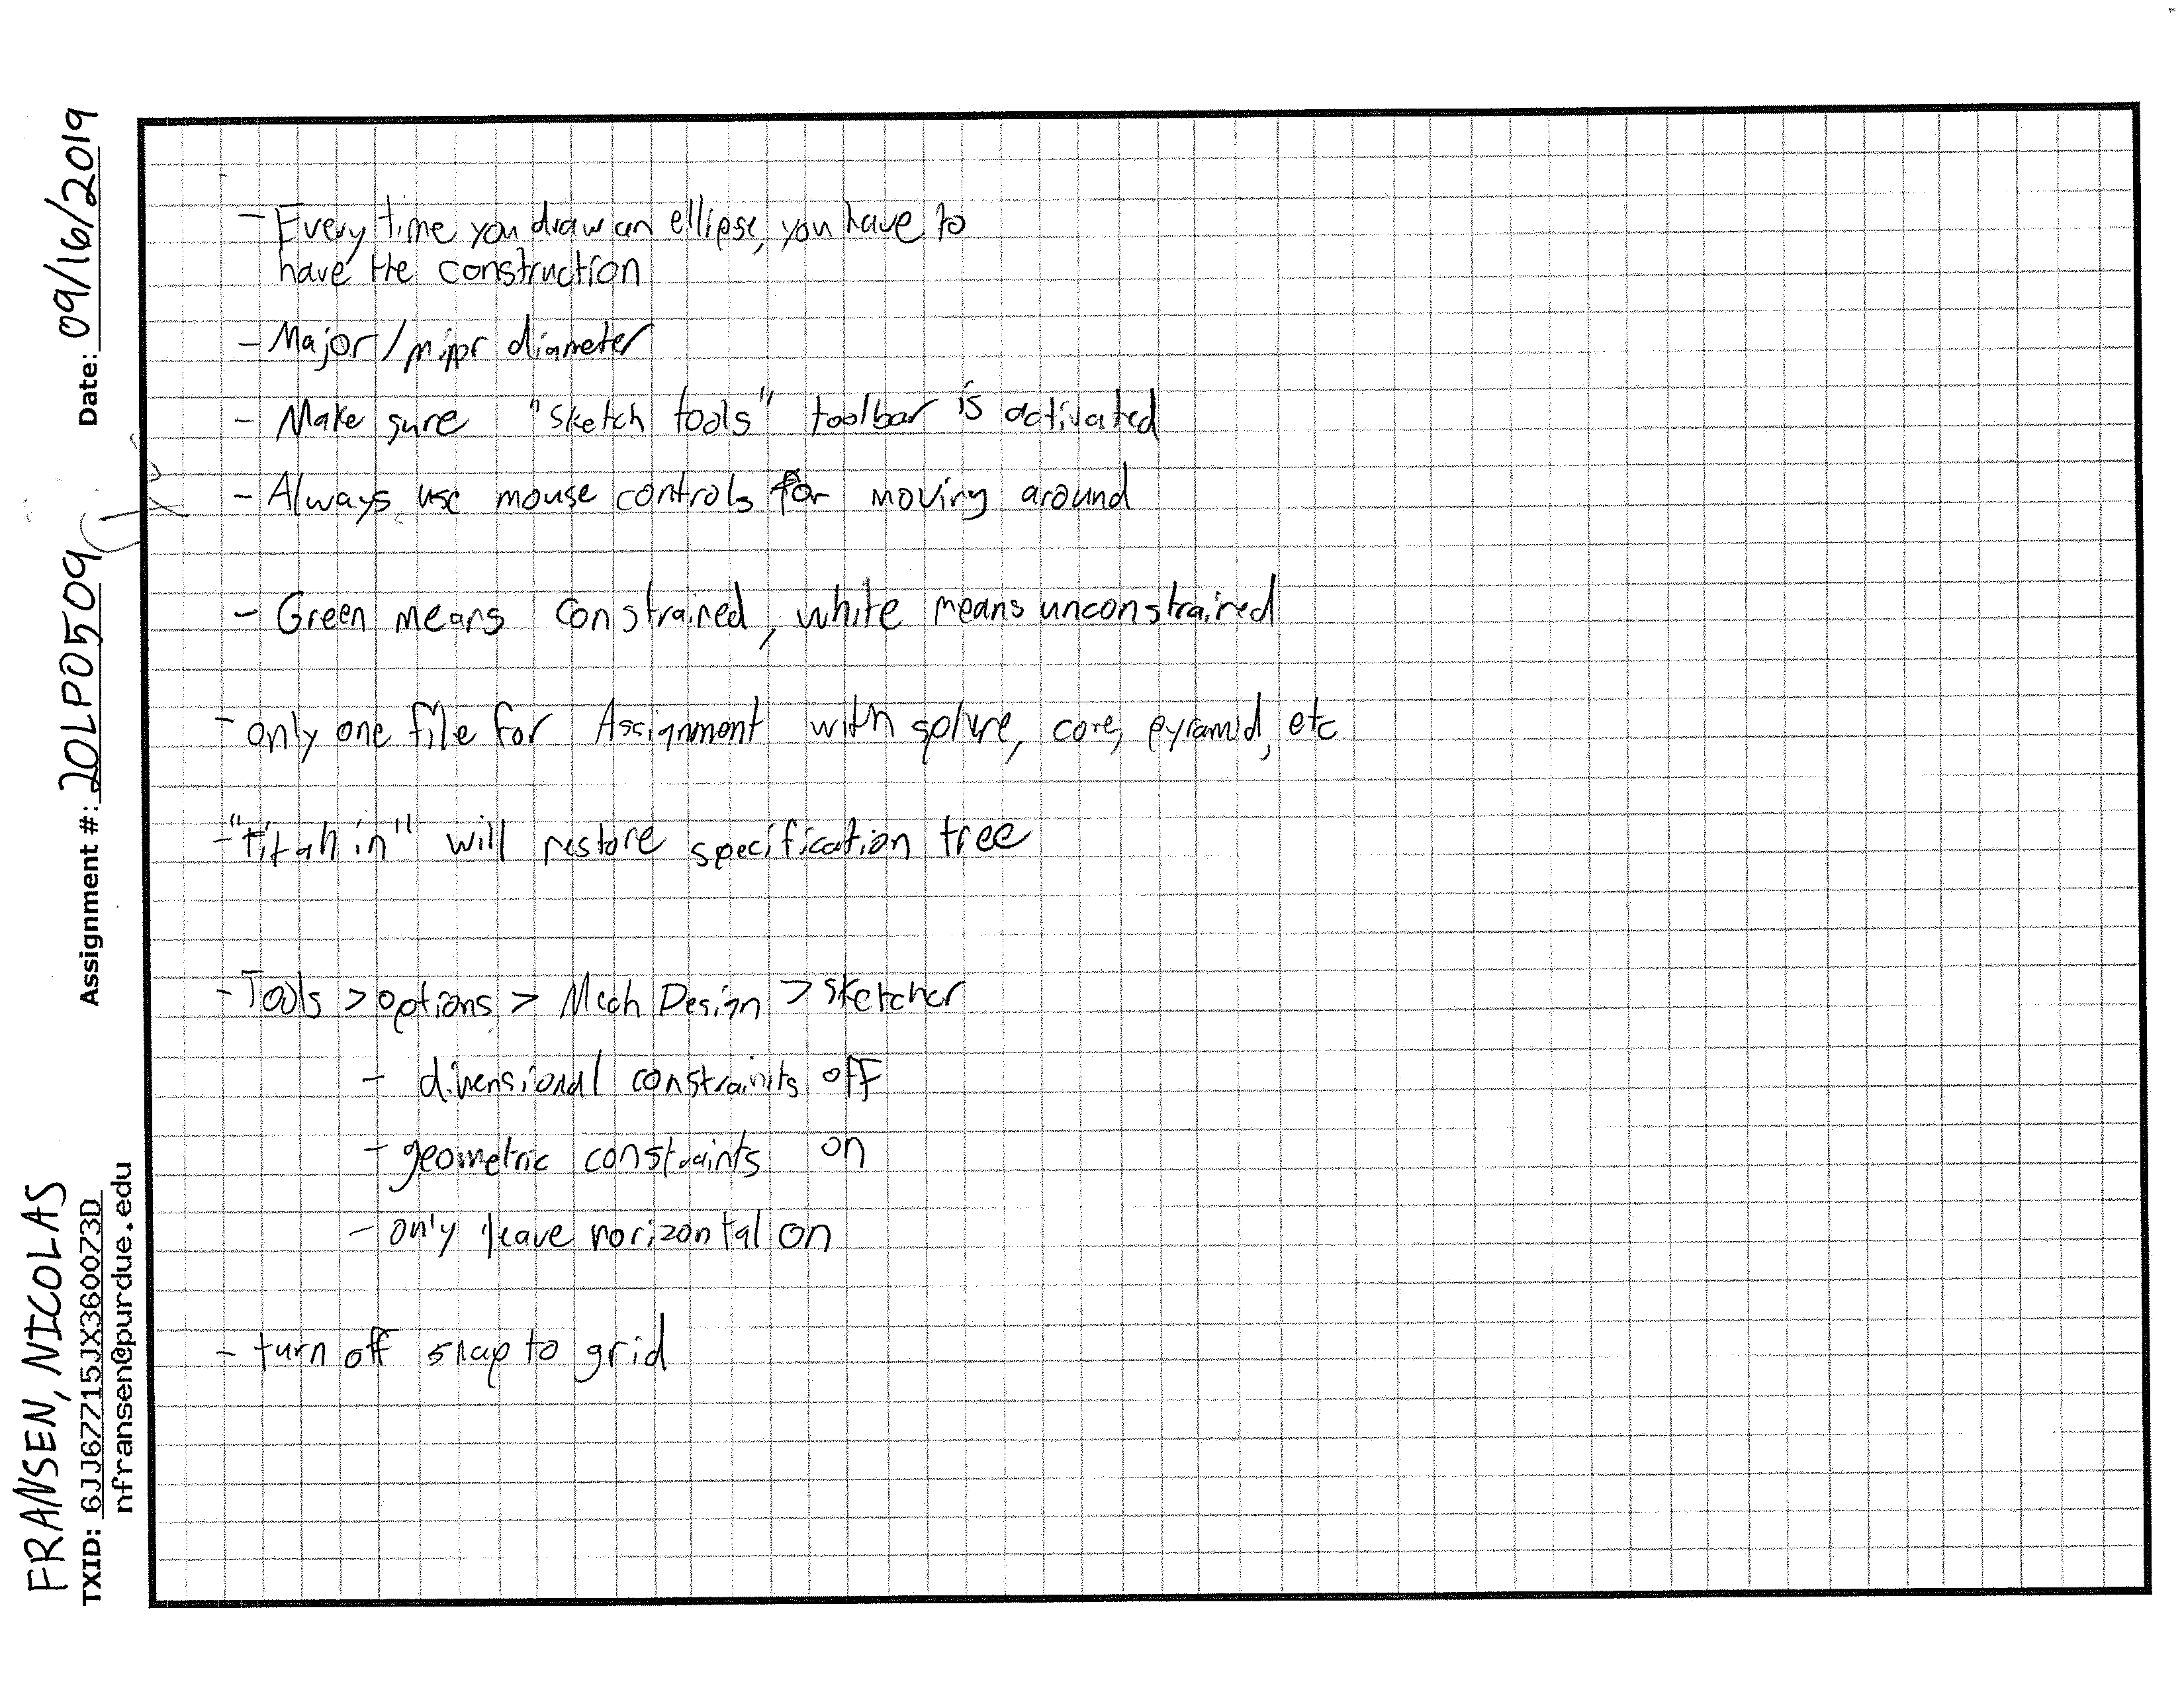 FRANSEN, NICOLAS
TXID: 6JJ6Z715JX360073D
nfransen@purdue.edu
Assignment #: 20LP0509
Date: 09/16/2019
- Every time you draw an ellipse, you have to
have the construction
- Major/minor diameter
- Make sure "sketch tools" toolbar is activated
- Always use mouse controls for moving around
- Green means constrained, white means unconstrained
- only one file for Assignment with sphere, cone, pyramid, etc
- will restore specification tree
- Tools > options > Mech Design > sketcher
- dimensional constraints off
- geometric constraints on
- only leave horizontal on
- turn off snap to grid